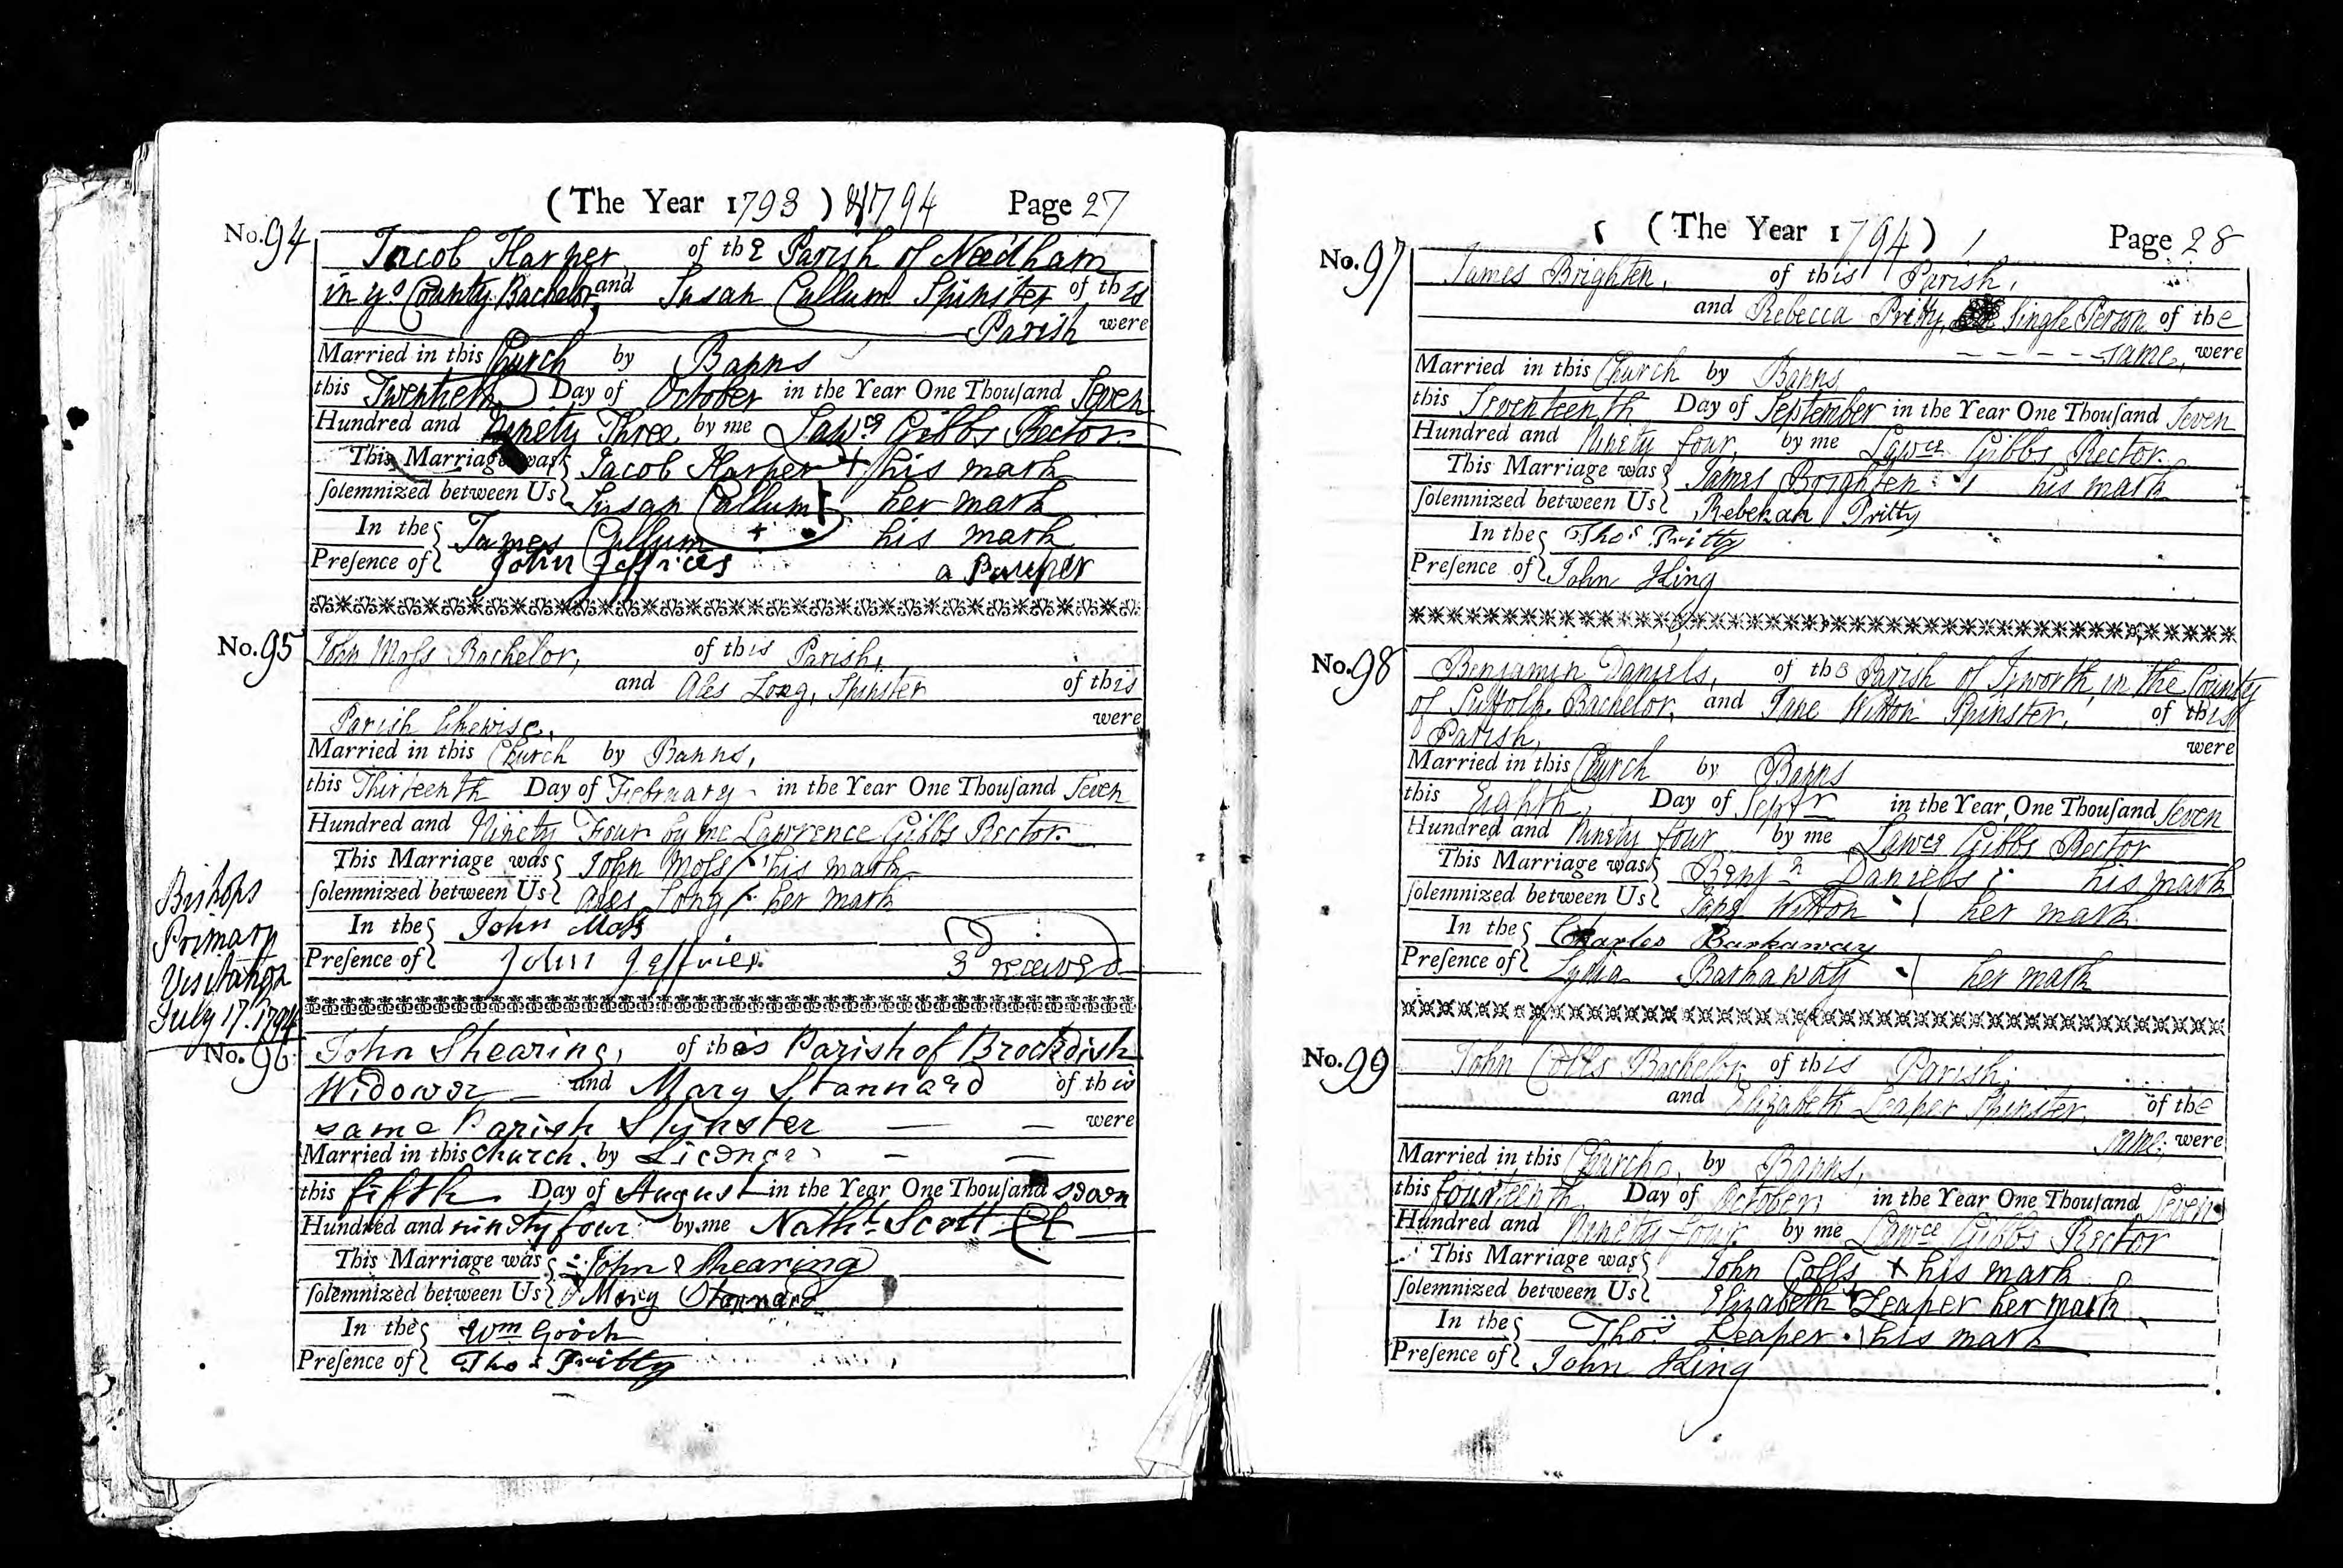 (The Year 1793) & 1794 Page 27
No. 94
Jacob Harper, of the Parish of Needham
in ye County Bachelor, and Susan Cullum Spinster of this
Parish were
Married in this Church by Banns
this Twentieth Day of October in the Year One Thouſand Seven
Hundred and Ninety Three by me Lawce Gibbs Rector
This Marriage was Jacob Harper + his mark
ſolemnized between Us Susan Cullum + her mark
In the James Cullum + his mark
Preſence of John Jeffries a Pauper
No. 95
John Moſs Bachelor, of this Parish,
and Ales Long, Spinster of this
Parish likewise, were
Married in this Church by Banns,
this Thirteenth Day of February in the Year One Thouſand Seven
Hundred and Ninety Four by me Lawrence Gibbs Rector.
This Marriage was John Moſs his mark
ſolemnized between Us Ales Long her mark
In the John Moſs
Preſence of John Jeffries. 3 received
Bishops
Primary
Visitation
July 17. 1794
No. 96
John Shearing, of this Parish of Brockdish
Widower and Mary Stannard of this
same Parish Spinster were
Married in this Church by Licence
this fifth Day of August in the Year One Thouſand seven
Hundred and ninety four by me Nathl Scott Cl
This Marriage was John Shearing
ſolemnized between Us Mary Stannard
In the Wm Gooch
Preſence of Thos Pritty
(The Year 1794) Page 28
No. 97
James Brighten, of this Parish,
and Rebecca Pritty, Single Person of the
same, were
Married in this Church by Banns
this Seventeenth Day of September in the Year One Thouſand Seven
Hundred and Ninety four, by me Lawce Gibbs Rector.
This Marriage was James Brighten his mark
ſolemnized between Us Rebekah Pritty
In the Thos Pritty
Preſence of John King
No. 98
Benjamin Daniels, of the Parish of Ixworth in the County
of Suffolk Bachelor, and Jane Witton Spinster, of this
Parish, were
Married in this Church by Banns
this Eighth Day of Septr in the Year One Thouſand Seven
Hundred and Ninety four by me Lawce Gibbs Rector
This Marriage was Benjn Daniels his mark
ſolemnized between Us Jane Witton her mark
In the Charles Barkaway
Preſence of Lydia Barkaway her mark
No. 99
John Cobbs Bachelor of this Parish;
and Elizabeth Leaper Spinster, of the
same; were
Married in this Church, by Banns,
this fourteenth Day of October in the Year One Thouſand Seven
Hundred and Ninety four by me Lawce Gibbs Rector
This Marriage was John Cobbs + his mark
ſolemnized between Us Elizabeth + Leaper her mark
In the Thos Leaper his mark
Preſence of John King